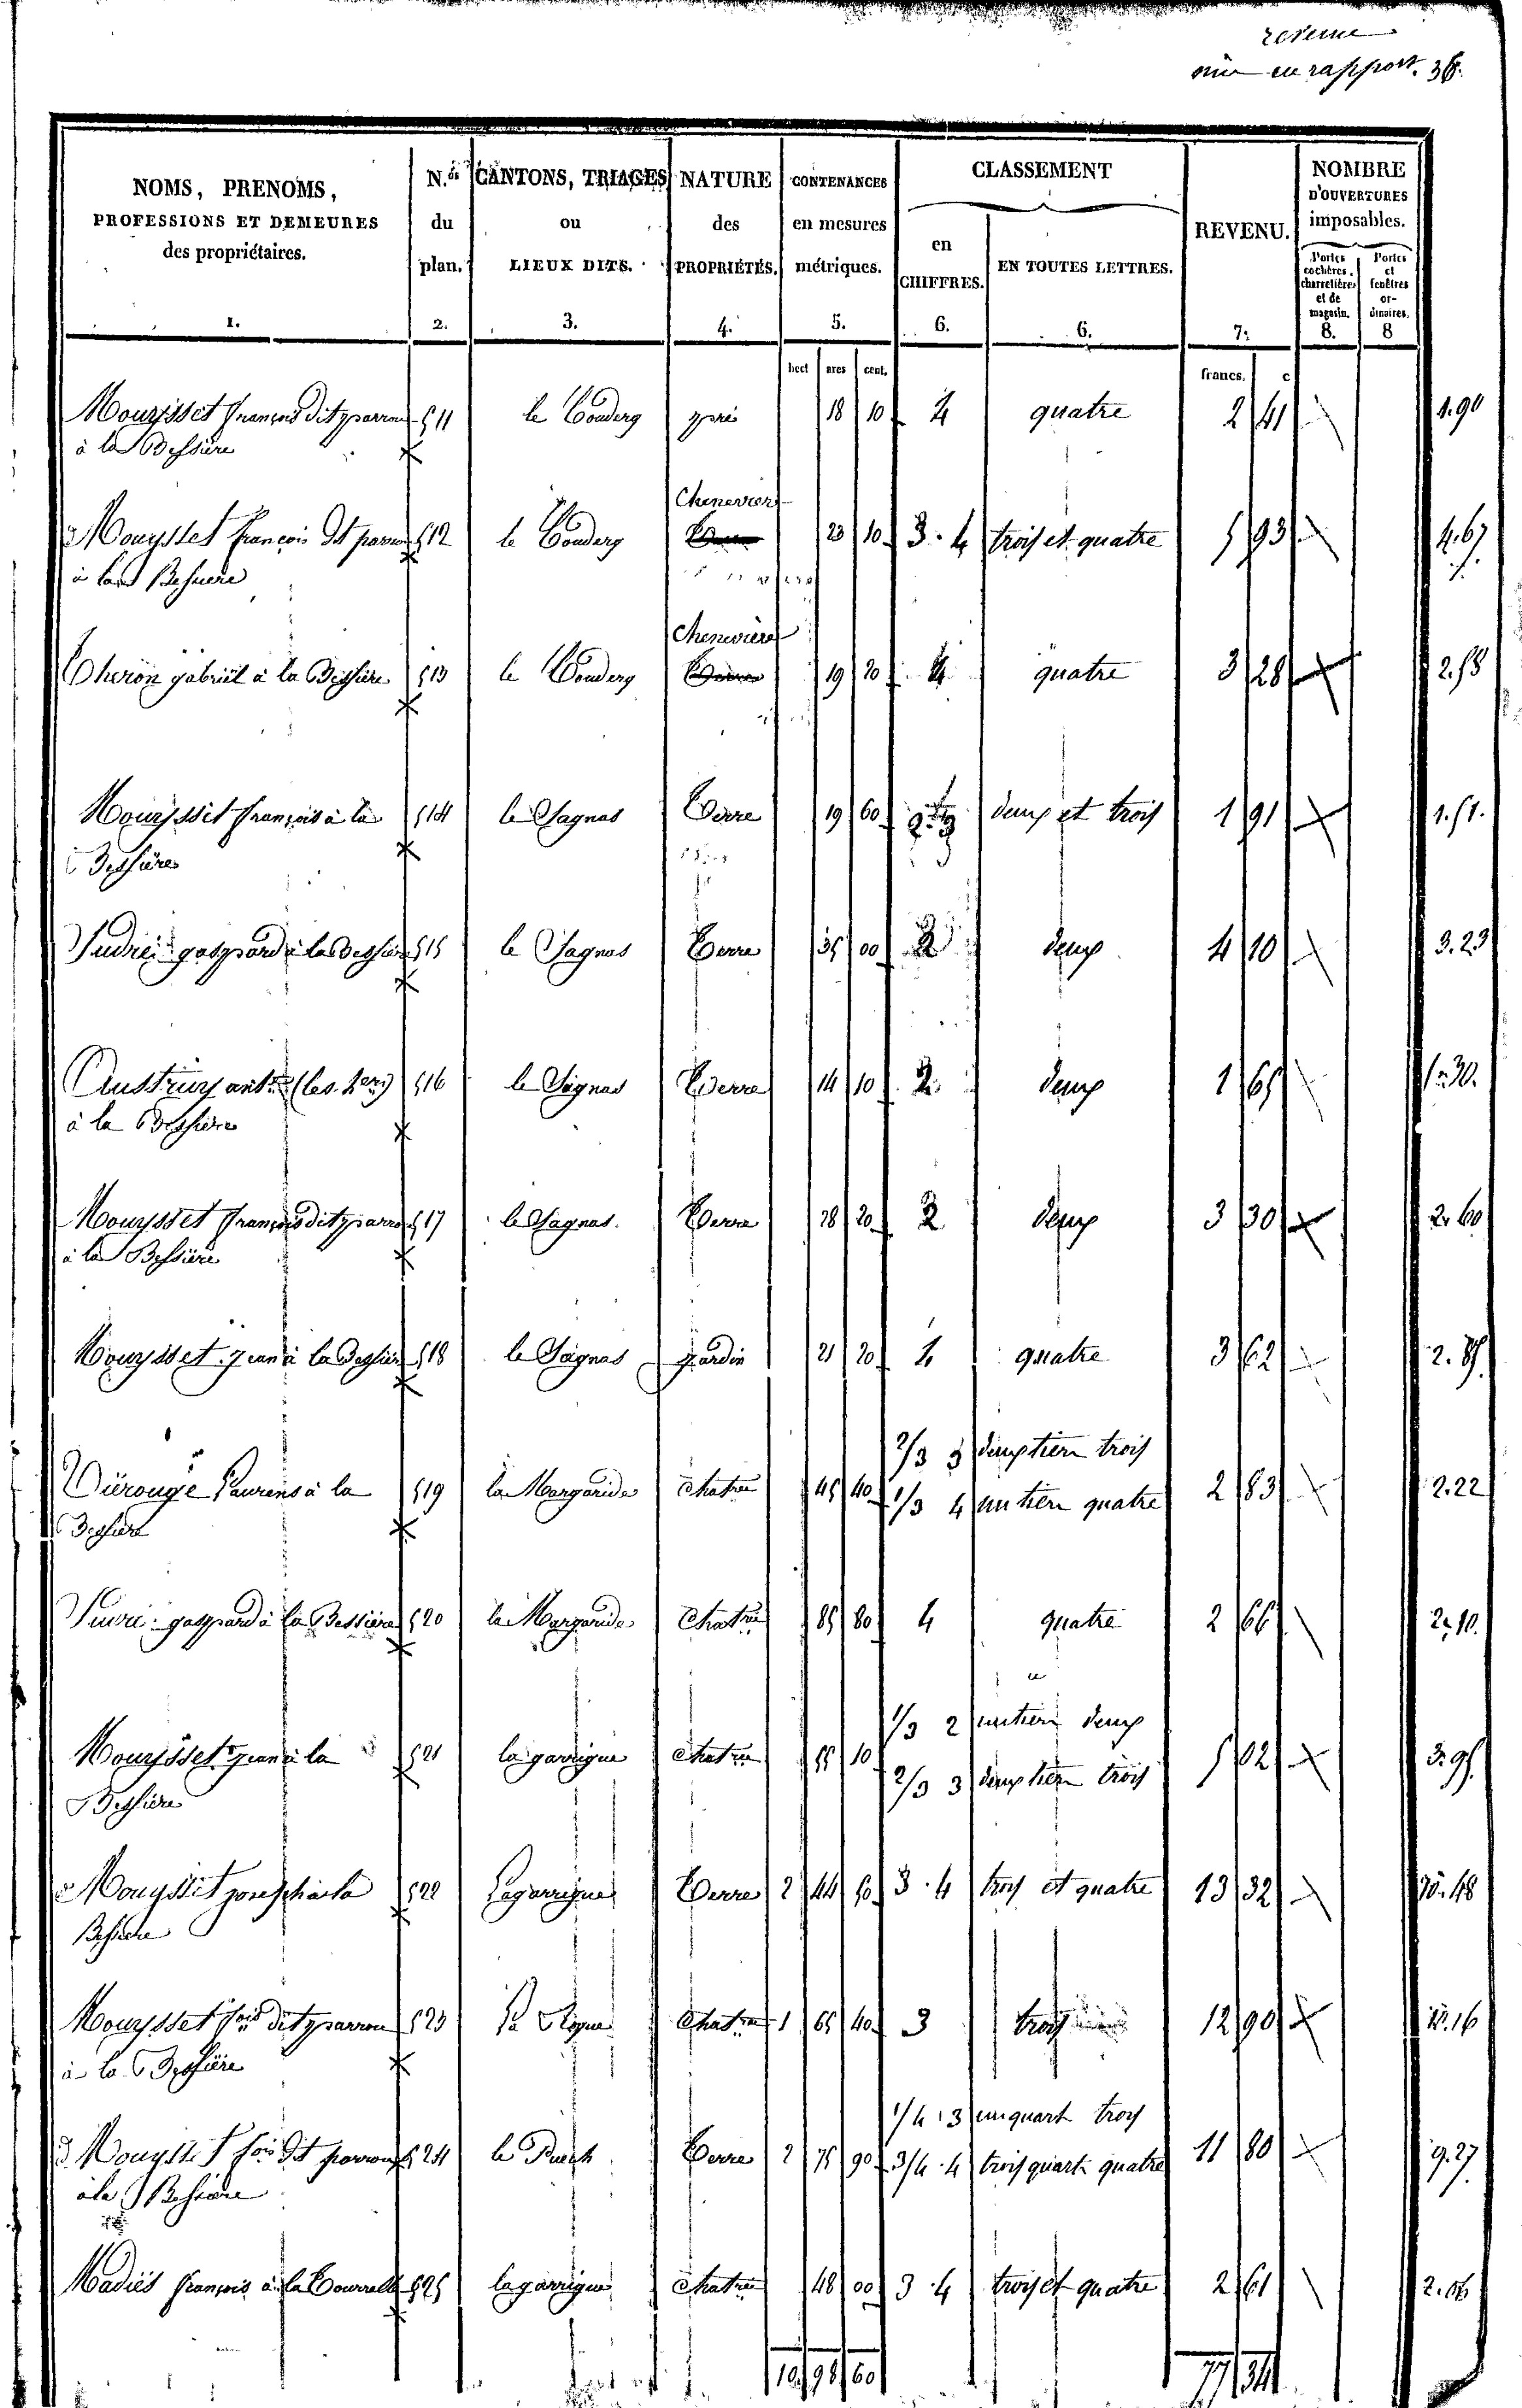 revenue
mis en rapport. 36.
NOMS, PRENOMS,
PROFESSIONS ET DEMEURES
des propriétaires.
1.
N.os
du
plan.
2.
CANTONS, TRIAGES
ou
LIEUX DITS.
3.
NATURE
des
PROPRIÉTÉS.
4.
CONTENANCES
en mesures
métriques.
5.
CLASSEMENT
en
CHIFFRES.
6.
EN TOUTES LETTRES.
6.
REVENU.
7.
NOMBRE
D'OUVERTURES
imposables.
Portes
cochères.
charretières
et de
magasin.
8.
Portes
et
fenêtres
or-
dinaires.
8
hect ares cent.
francs. c
Mouysset françois dit parrou 511 le Couderq pré 18 10 4 quatre 2 41 1.90
à la Bessière
Chenevière
Mouysset françois dit parrou 512 le Couderq 23 10 3.4 trois et quatre 5 93 4.67
à la Bessiere
Chenevière
Theron gabriel à la Bessière 513 le Couderq 19 20 4 quatre 3 28 2.58
Mouysset françois à la 514 le Sagnas Terre 19 60 2.3 deux et trois 1 91 1.51.
Bessière
gaspard à la Bessière 515 le Sagnas Terre 35 00 2 deux 4 10 3.23
Austruy ant.ne (les her.) 516 le Sagnas Terre 14 10 2. deux 1 65 1.30.
à la Bessière
Mouysset françois dit parrou 517 le Sagnas. Terre 28 20 2 deux 3 30 2.60
à la Bessière
Mouysset jean à la Bessière 518 le Sagnas jardin 21 20 4 quatre 3 62 2.85.
2/3 3 deux tiers trois
Laurens à la 519 la Margaride Chatrée 45 40 1/3 4 un tiers quatre 2 83 2.22
Bessière
gaspard à la Bessière 520 la Margaride Chatrée 85 80 4 quatre 2 66 2.10.
1/3 2 un tiers deux
Mouysset jean à la 521 la garrigue Chatrée 55 10 2/3 3 deux tiers trois 5 02 3.95.
Bessière
Mouysset joseph à la 522 Lagarrigue Terre 2 44 60 3.4 trois et quatre 13 32 10.48
Bessiere
Mouysset fois dit parrou 523 Chatrée 1 65 40 3 trois 12 90 10.16
à la Bessière
1/4 3 un quart trois
Mouysset fois dit parrou 524 le Puech Terre 2 75 90 3/4.4 trois quarts quatre 11 80 9.27.
à la Bessière
Madiès françois à la 525 la garrigue Chatrée 48 00 3.4 trois et quatre 2 61 2.06
10 98 60 77 34